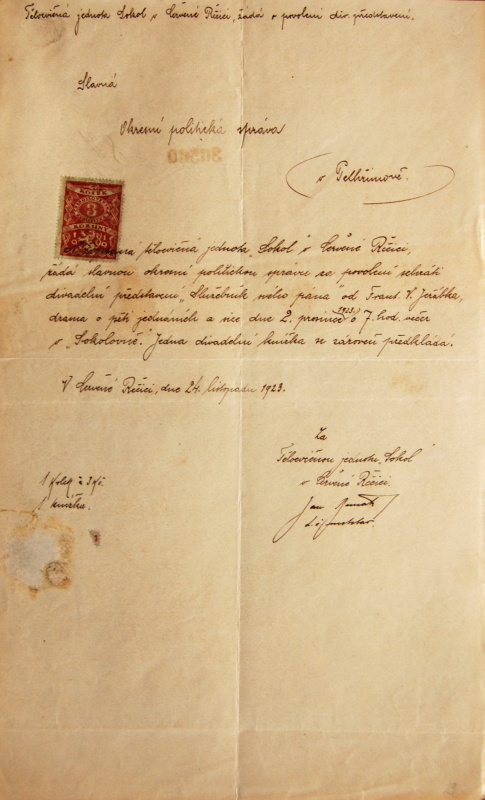 Tělocvičná jednota Sokol v Červené Řečici, žádá o povolení div. představení.
Slavná
Okresní politická správa
v Pelhřimově.
KOLEK
3
KORUNY
tělocvičná jednota „Sokol" v Červené Řečici,
žádá slavnou okresní politickou správu za povolení sehráti
divadelní představení „Služebník svého pána" od Frant. V. Jeřábka,
drama o pěti jednáních a sice dne 2. prosince 1923 o 7. hod. večer
v „Sokolovně". Jedna divadelní knížka se zároveň předkládá.
V Červené Řečici, dne 24. listopadu 1923.
Za
Tělocvičnou jednotu „Sokol"
v Červené Řečici.
1 kolek à 3 Kč
1 knížka.
Jan